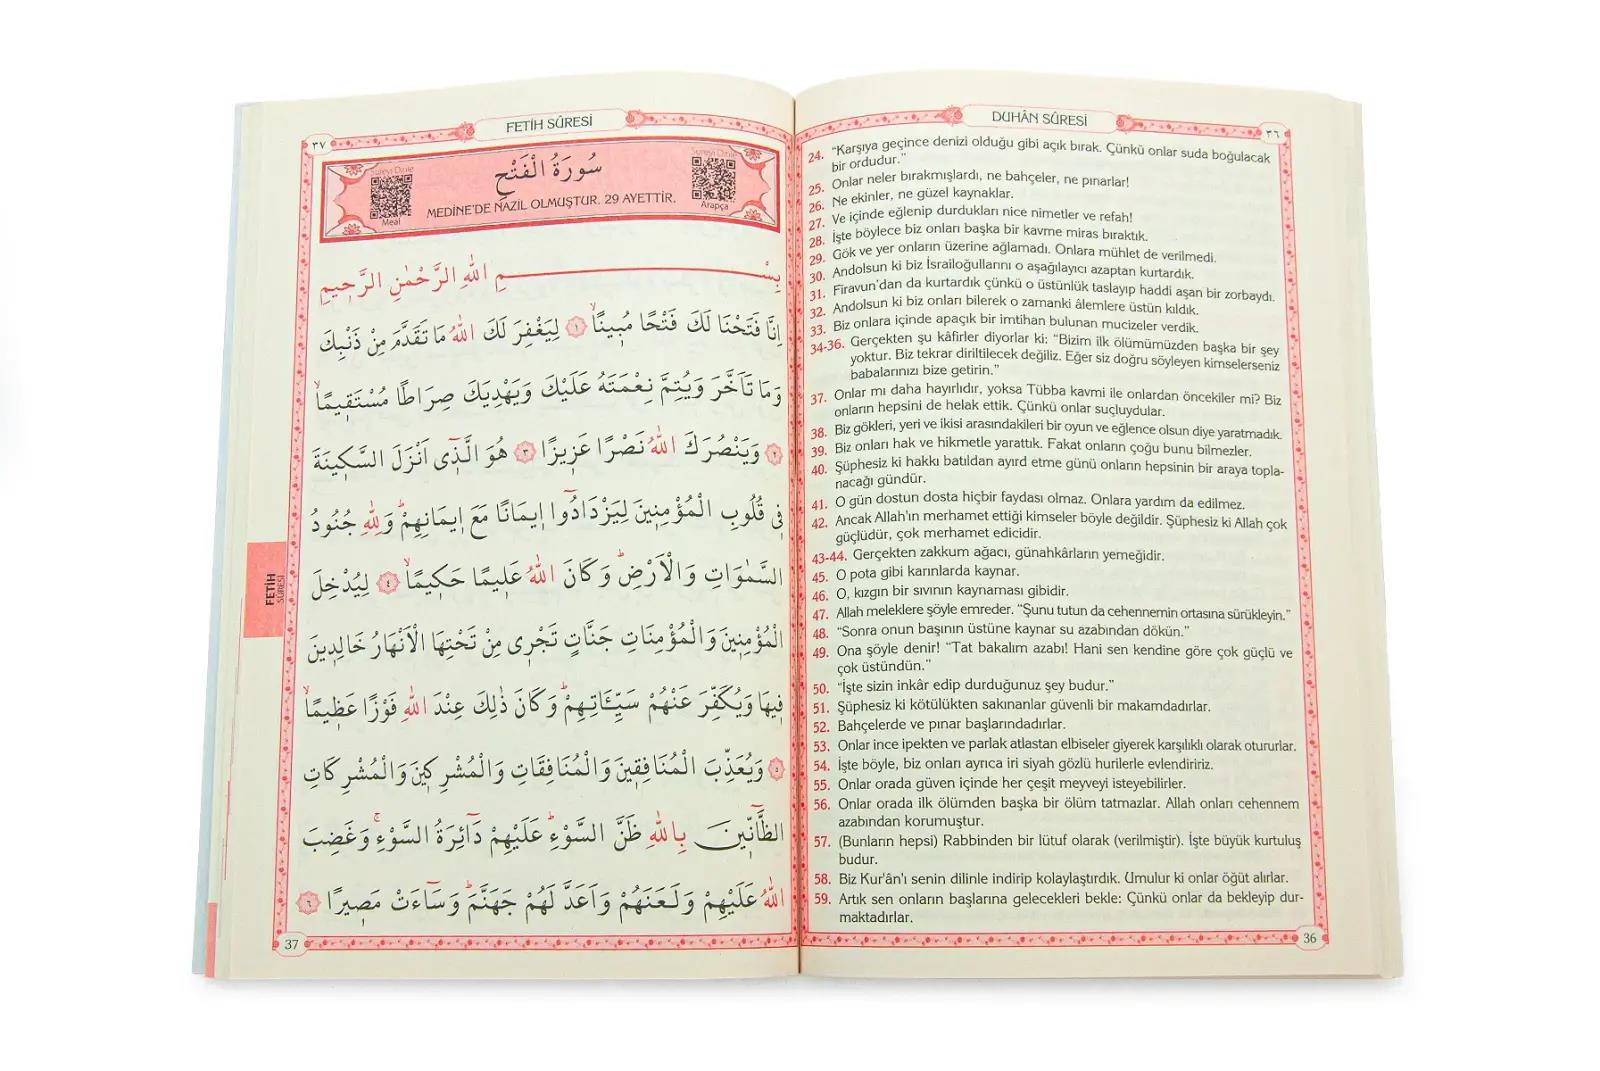 DUHÂN SÛRESİ
٣٦
24. “Karşıya geçince denizi olduğu gibi açık bırak. Çünkü onlar suda boğulacak
bir ordudur.”
25. Onlar neler bırakmışlardı, ne bahçeler, ne pınarlar!
26. Ne ekinler, ne güzel kaynaklar.
27. Ve içinde eğlenip durdukları nice nimetler ve refah!
28. İşte böylece biz onları başka bir kavme miras bıraktık.
29. Gök ve yer onların üzerine ağlamadı. Onlara mühlet de verilmedi.
30. Andolsun ki biz İsrailoğullarını o aşağılayıcı azaptan kurtardık.
31. Firavun’dan da kurtardık çünkü o üstünlük taslayıp haddi aşan bir zorbaydı.
32. Andolsun ki biz onları bilerek o zamanki âlemlere üstün kıldık.
33. Biz onlara içinde apaçık bir imtihan bulunan mucizeler verdik.
34-36. Gerçekten şu kâfirler diyorlar ki: “Bizim ilk ölümümüzden başka bir şey
yoktur. Biz tekrar diriltilecek değiliz. Eğer siz doğru söyleyen kimselerseniz
babalarınızı bize getirin.”
37. Onlar mı daha hayırlıdır, yoksa Tübba kavmi ile onlardan öncekiler mi? Biz
onların hepsini de helak ettik. Çünkü onlar suçluydular.
38. Biz gökleri, yeri ve ikisi arasındakileri bir oyun ve eğlence olsun diye yaratmadık.
39. Biz onları hak ve hikmetle yarattık. Fakat onların çoğu bunu bilmezler.
40. Şüphesiz ki hakkı batıldan ayırd etme günü onların hepsinin bir araya topla-
nacağı gündür.
41. O gün dostun dosta hiçbir faydası olmaz. Onlara yardım da edilmez.
42. Ancak Allah’ın merhamet ettiği kimseler böyle değildir. Şüphesiz ki Allah çok
güçlüdür, çok merhamet edicidir.
43-44. Gerçekten zakkum ağacı, günahkârların yemeğidir.
45. O pota gibi karınlarda kaynar.
46. O, kızgın bir sıvının kaynaması gibidir.
47. Allah meleklere şöyle emreder. “Şunu tutun da cehennemin ortasına sürükleyin.”
48. “Sonra onun başının üstüne kaynar su azabından dökün.”
49. Ona şöyle denir! “Tat bakalım azabı! Hani sen kendine göre çok güçlü ve
çok üstündün.”
50. “İşte sizin inkâr edip durduğunuz şey budur.”
51. Şüphesiz ki kötülükten sakınanlar güvenli bir makamdadırlar.
52. Bahçelerde ve pınar başlarındadırlar.
53. Onlar ince ipekten ve parlak atlastan elbiseler giyerek karşılıklı olarak otururlar.
54. İşte böyle, biz onları ayrıca iri siyah gözlü hurilerle evlendiririz.
55. Onlar orada güven içinde her çeşit meyveyi isteyebilirler.
56. Onlar orada ilk ölümden başka bir ölüm tatmazlar. Allah onları cehennem
azabından korumuştur.
57. (Bunların hepsi) Rabbinden bir lütuf olarak (verilmiştir). İşte büyük kurtuluş
budur.
58. Biz Kur’ân’ı senin dilinle indirip kolaylaştırdık. Umulur ki onlar öğüt alırlar.
59. Artık sen onların başlarına gelecekleri bekle: Çünkü onlar da bekleyip dur-
maktadırlar.
36
٣٧
FETİH SÛRESİ
Sureyi Dinle
Meal
سُورَةُ الْفَتْحِ
MEDİNE’DE NAZİL OLMUŞTUR. 29 AYETTİR.
Sureyi Dinle
Arapça
بِسْمِ اللّٰهِ الرَّحْمٰنِ الرَّح۪يمِ
اِنَّا فَتَحْنَا لَكَ فَتْحًا مُب۪ينًاۙ ﴿١﴾ لِيَغْفِرَ لَكَ اللّٰهُ مَا تَقَدَّمَ مِنْ ذَنْبِكَ
وَمَا تَاَخَّرَ وَيُتِمَّ نِعْمَتَهُ عَلَيْكَ وَيَهْدِيَكَ صِرَاطًا مُسْتَق۪يمًاۙ
﴿٢﴾ وَيَنْصُرَكَ اللّٰهُ نَصْرًا عَز۪يزًا ﴿٣﴾ هُوَ الَّذ۪ٓي اَنْزَلَ السَّك۪ينَةَ
ف۪ي قُلُوبِ الْمُؤْمِن۪ينَ لِيَزْدَادُٓوا ا۪يمَانًا مَعَ ا۪يمَانِهِمْۜ وَلِلّٰهِ جُنُودُ
السَّمٰوَاتِ وَالْاَرْضِۜ وَكَانَ اللّٰهُ عَل۪يمًا حَك۪يمًاۙ ﴿٤﴾ لِيُدْخِلَ
الْمُؤْمِن۪ينَ وَالْمُؤْمِنَاتِ جَنَّاتٍ تَجْر۪ي مِنْ تَحْتِهَا الْاَنْهَارُ خَالِد۪ينَ
ف۪يهَا وَيُكَفِّرَ عَنْهُمْ سَيِّـَٔاتِهِمْۜ وَكَانَ ذٰلِكَ عِنْدَ اللّٰهِ فَوْزًا عَظ۪يمًاۙ
﴿٥﴾ وَيُعَذِّبَ الْمُنَافِق۪ينَ وَالْمُنَافِقَاتِ وَالْمُشْرِك۪ينَ وَالْمُشْرِكَاتِ
الظَّٓانّ۪ينَ بِاللّٰهِ ظَنَّ السَّوْءِۜ عَلَيْهِمْ دَٓائِرَةُ السَّوْءِۚ وَغَضِبَ
اللّٰهُ عَلَيْهِمْ وَلَعَنَهُمْ وَاَعَدَّ لَهُمْ جَهَنَّمَۜ وَسَٓاءَتْ مَص۪يرًا ﴿٦﴾
FETİH
SÛRESİ
37